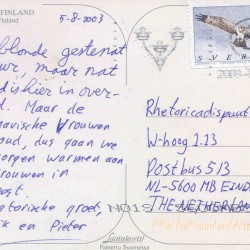 FINLAND
Finland
5-8-2003
SVER
blonde gestemt
uur, maar nat
dishier in over-
d. Maar de
navische Vrouwen
oud, dus gaan we
orgen warmen aan
rouwen in
torische groet,
ik en Pieter
Rhetoricadispuut
W-hoog 1.13
Postbus 513
NL-5600 MB EIND
THE NETHERLAN
Laatukortti
Painettu Suomessa